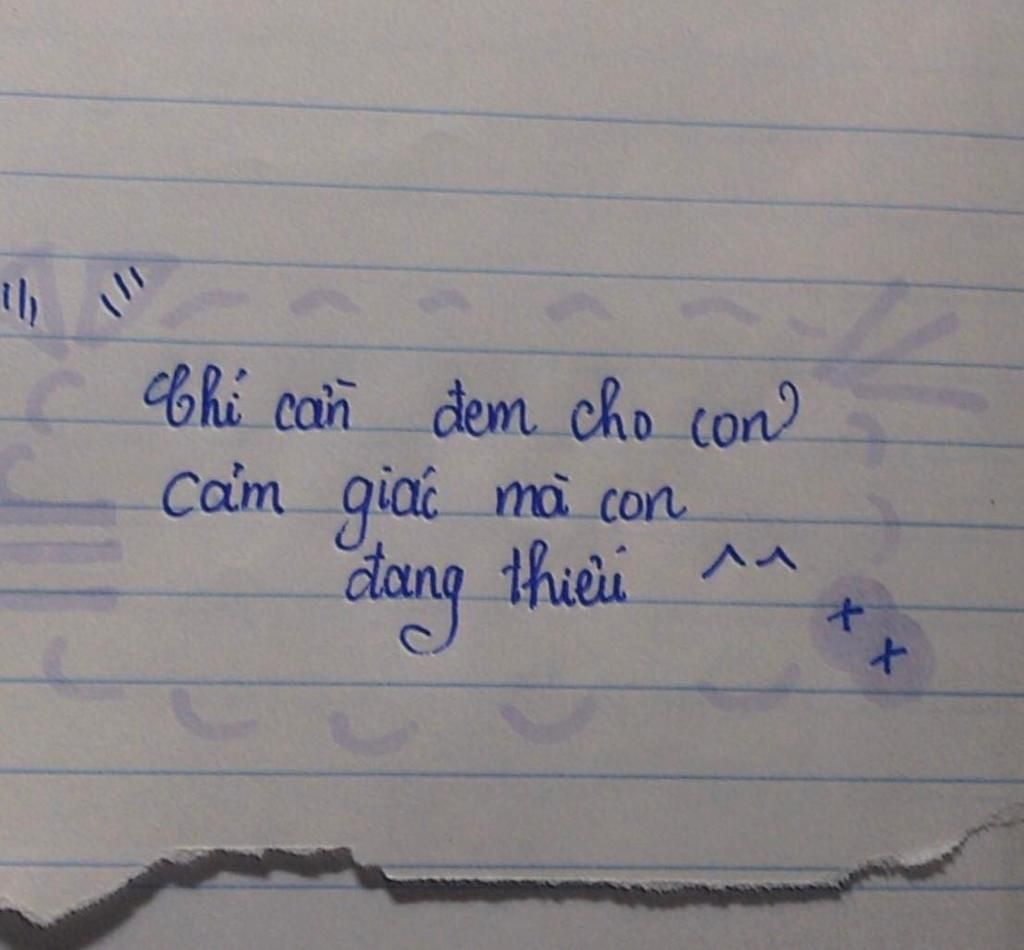 Chỉ cần đem cho con
cảm giác mà con
đang thiếu ^^